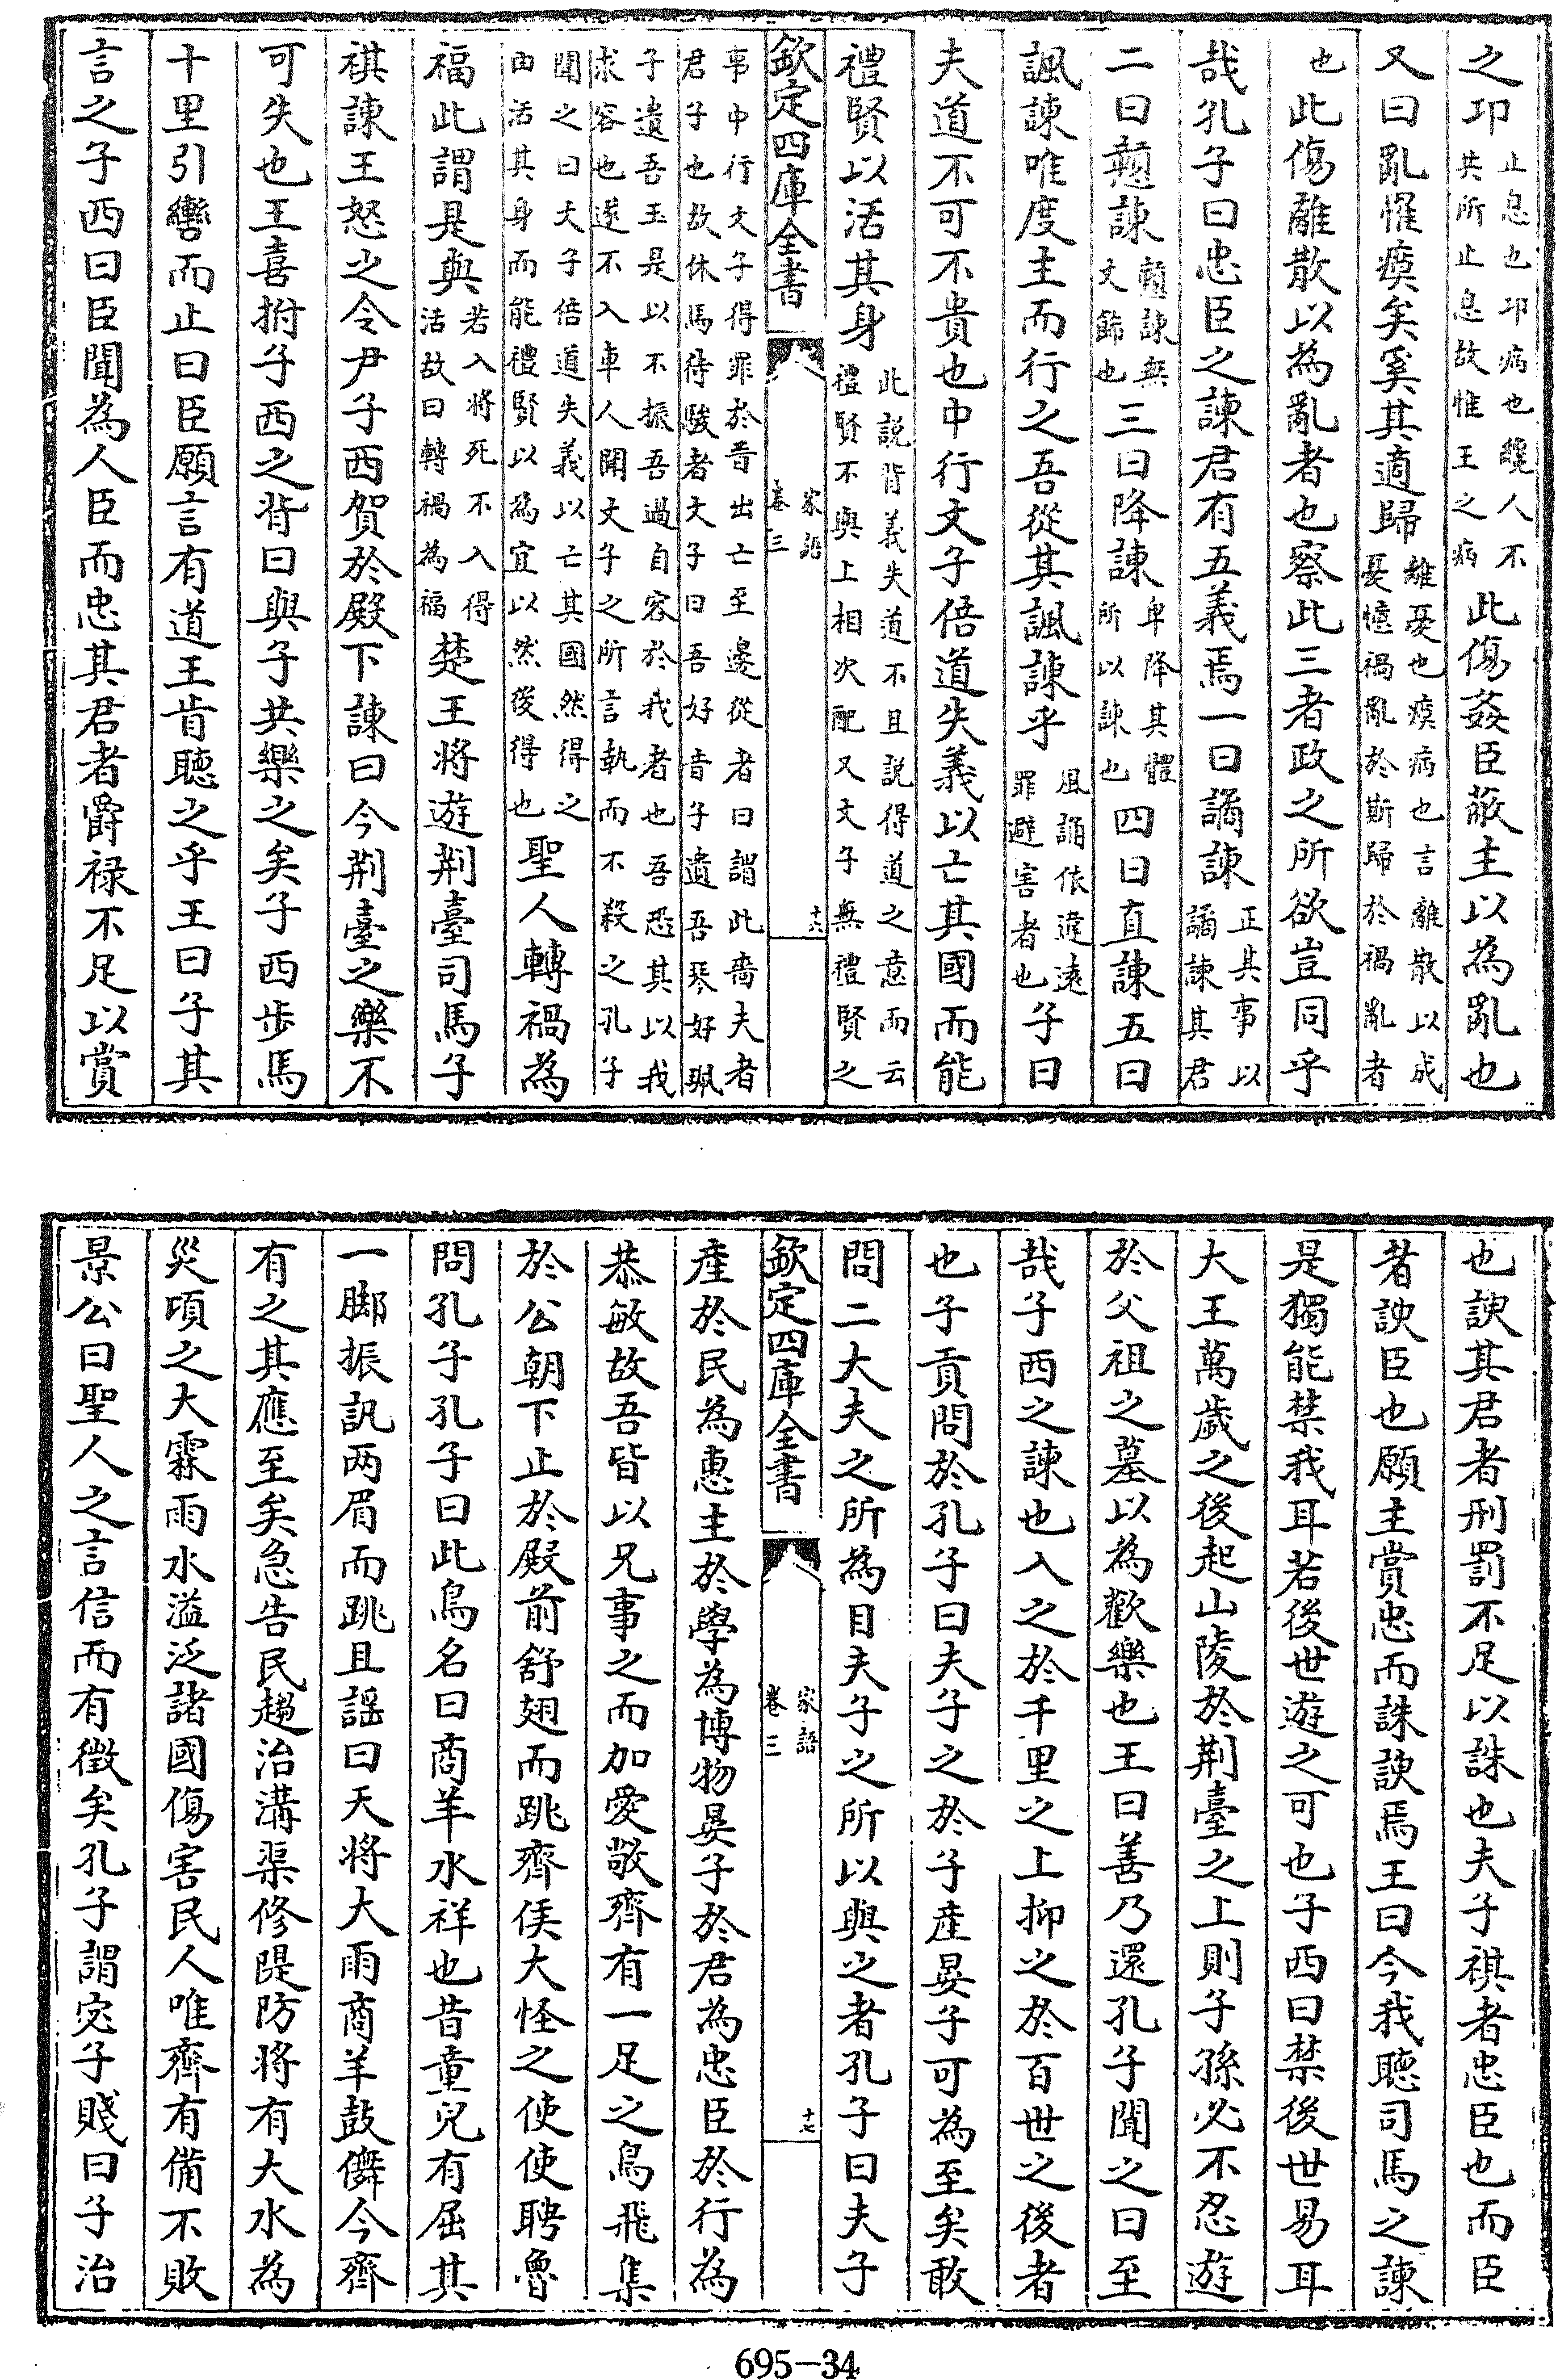 之卭止息也卭病也纔人不共所止息故惟王之病此傷姦臣蔽主以為亂也
又曰亂惟瘼矣奚其適歸離憂也瘼病也言離散以成憂憶禍亂於斯歸於禍亂者
也此傷離散以為亂者也察此三者政之所欲豈同乎
哉孔子曰忠臣之諫君有五義焉一曰譎諫正其事以譎諫其君
二曰戇諫戇諫無文飾也三曰降諫卑降其體所以諫也四曰直諫五曰
諷諫唯度主而行之吾從其諷諫乎風誦依違遠罪避害者也子曰
夫道不可不貴也中行文子倍道失義以亡其國而能
禮賢以活其身此説背義失道不且説得道之意而云禮賢不與上相次配又文子無禮賢之
欽定四庫全書 家語卷三 十六
事中行文子得罪於晉出亡至邊從者曰謂此嗇夫者君子也故休馬待駿者文子曰吾好音子遺吾琴好珮
子遺吾玉是以不振吾過自容於我者也吾恐其以我求容也遂不入車人聞文子之所言執而不殺之孔子
聞之曰文子倍道失義以亡其國然得之由活其身而能禮賢以為宜以然後得也聖人轉禍為
福此謂是與若入將死不入得活故曰轉禍為福楚王將遊荆臺司馬子
祺諫王怒之令尹子西賀於殿下諫曰今荆臺之樂不
可失也王喜拊子西之背曰與子共樂之矣子西步馬
十里引轡而止曰臣願言有道王肯聽之乎王曰子其
言之子西曰臣聞為人臣而忠其君者爵禄不足以賞
也諛其君者刑罰不足以誅也夫子祺者忠臣也而臣
者諛臣也願主賞忠而誅諛焉王曰今我聽司馬之諫
是獨能禁我耳若後世遊之可也子西曰禁後世易耳
大王萬歲之後起山陵於荆臺之上則子孫必不忍遊
於父祖之墓以為歡樂也王曰善乃還孔子聞之曰至
哉子西之諫也入之於千里之上抑之於百世之後者
也子貢問於孔子曰夫子之於子產晏子可為至矣敢
問二大夫之所為目夫子之所以與之者孔子曰夫子
欽定四庫全書 家語卷三 十七
產於民為惠主於學為博物晏子於君為忠臣於行為
恭敏故吾皆以兄事之而加愛敬齊有一足之鳥飛集
於公朝下止於殿前舒翅而跳齊侯大怪之使使聘魯
問孔子孔子曰此鳥名曰商羊水祥也昔童兒有屈其
一脚振訊两眉而跳且謡曰天將大雨商羊鼓儛今齊
有之其應至矣急告民趨治溝渠修隄防將有大水為
災頃之大霖雨水溢泛諸國傷害民人唯齊有備不敗
景公曰聖人之言信而有徴矣孔子謂宓子賤曰子治
695-34